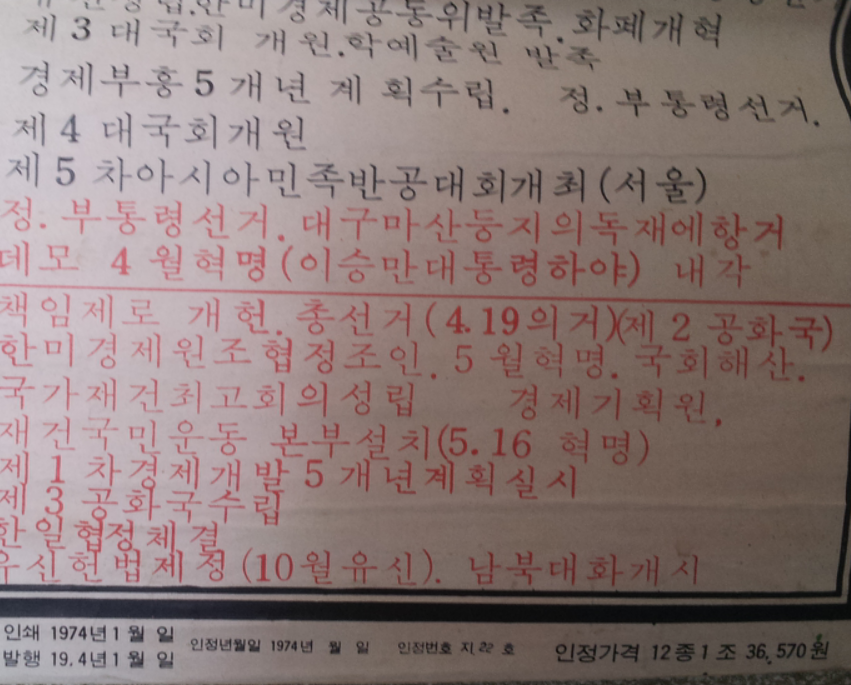 한미경제공동위발족. 화폐개혁
제 3 대국회 개원.학예술원 발족
경제부흥 5 개년 계 획수립. 정. 부통령선거.
제 4 대국회개원
제 5 차아시아민족반공대회개최(서울)
정. 부통령선거. 대구마산등지의독재에항거
데모 4 월혁명(이승만대통령하야) 내각
책임제로 개헌. 총선거(4.19의거)(제 2 공화국)
한미경제원조협정조인. 5 월혁명. 국회해산.
국가재건최고회의성립 경제기획원,
재건국민운동 본부설치(5.16 혁명)
제 1 차경제개발 5 개년계획실시
제 3 공화국수립
한일협정체결
유신헌법제정(10월유신). 남북대화개시
인쇄 1974년 1 월 일
발행 19.4년 1 월 일
인정년월일 1974년 월 일 인정번호 지 22 호 인정가격 12종 1 조 36,570원